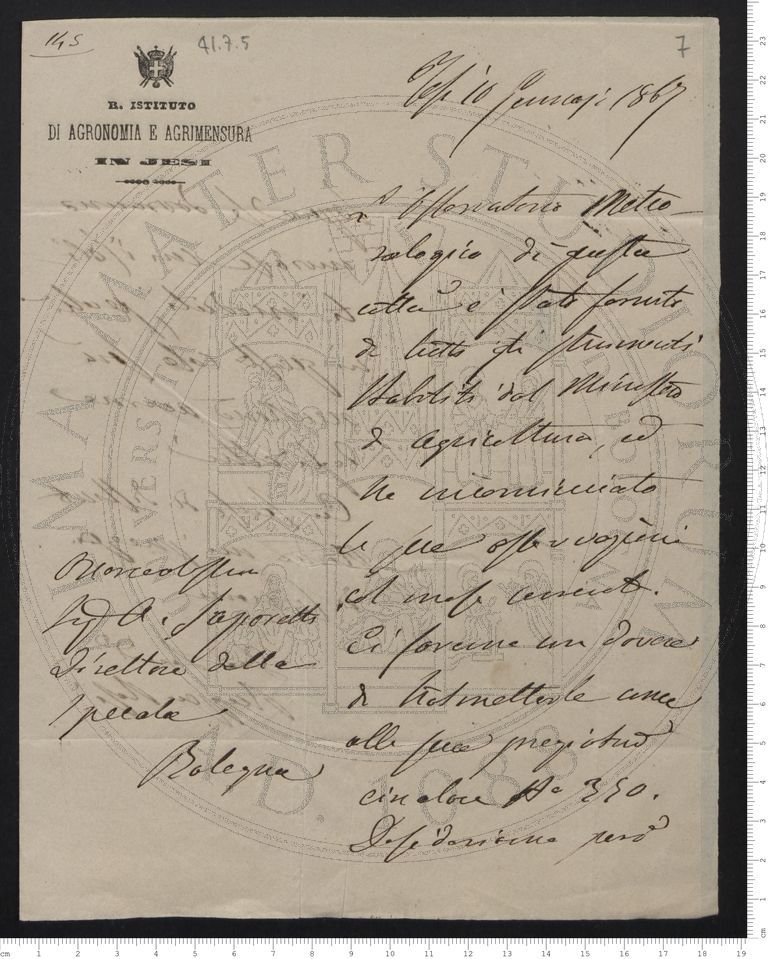 145
41.7.5
7
R. ISTITUTO
DI AGRONOMIA E AGRIMENSURA
IN JESI
Jesi 10 Gennajo 1867
L'Osservatorio Meteo-
rologico di questa
città è stato fornito
di tutti gli strumenti
stabiliti dal Ministero
d'agricoltura, ed
ha incominciato
le sue osservazioni
col mese corrente.
Ci faremo un dovere
di trasmetterle anche
alla sua pregiatma
circolare No 350.
Desideriamo però
Sig A. Saporetti
Direttore della
Specola
Bologna
ALMA MATER STUDIORUM
A.D. 1088